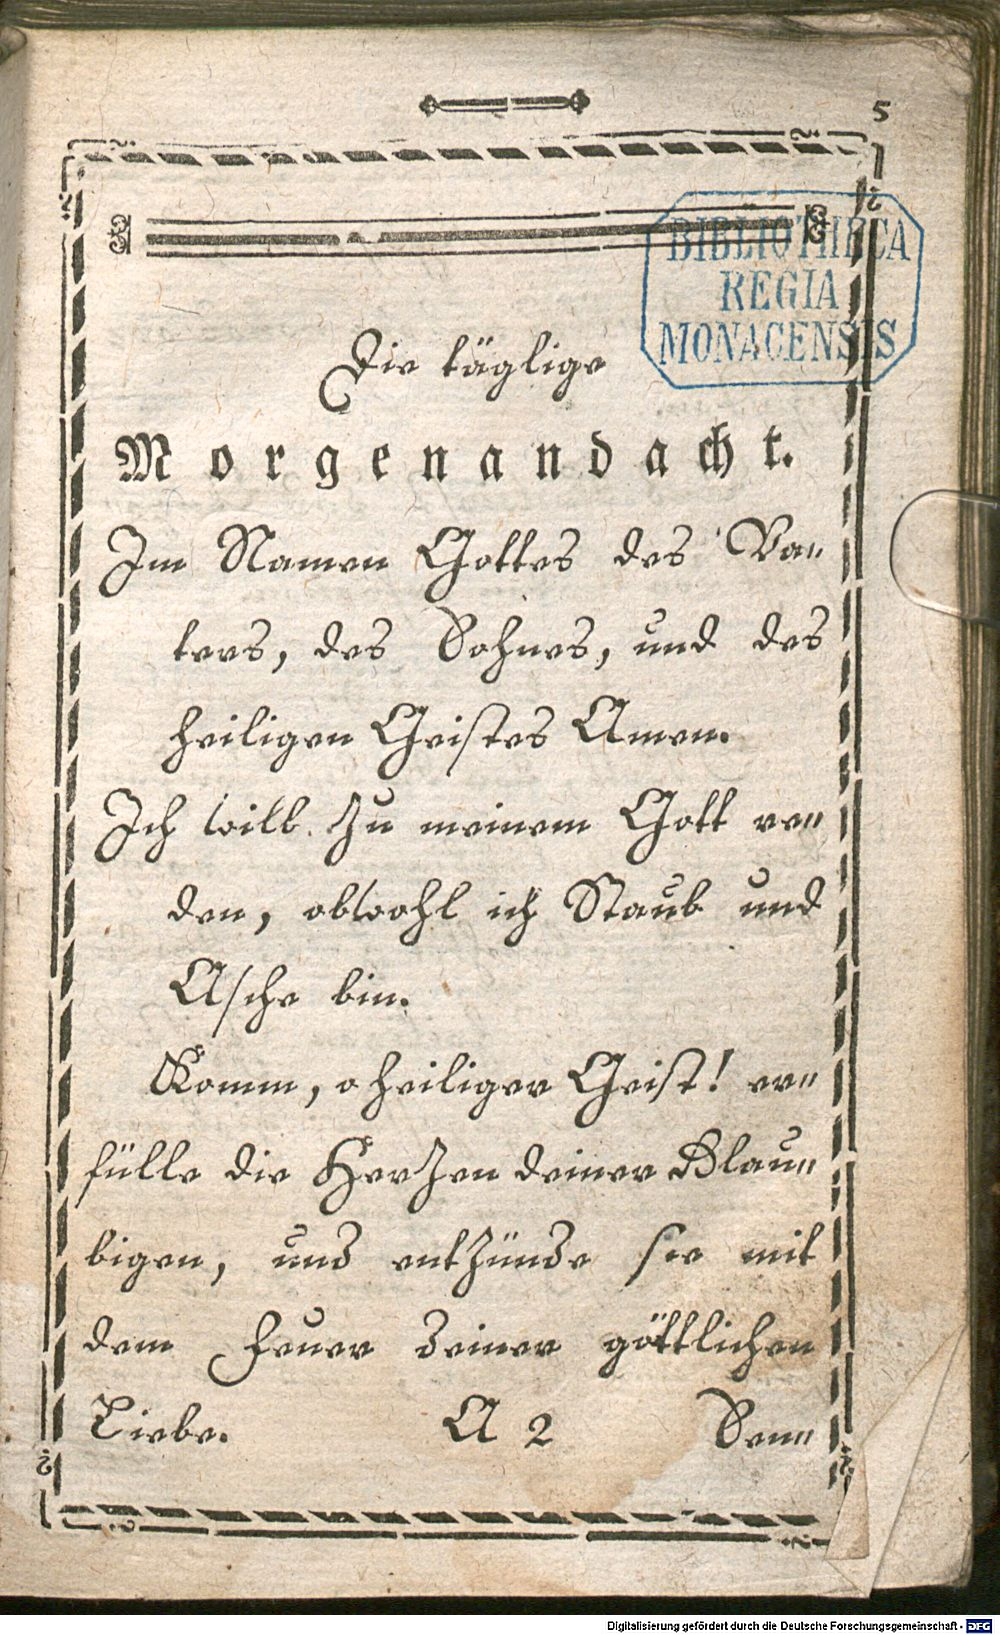 5
BIBLIOTHECA
REGIA
MONACENSIS
Die täglige
Morgenandacht.
Im Namen Gottes des Va=
ters, des Sohnes, und des
heiligen Geistes Amen.
Ich will zu meinem Gott re=
den, obwohl ich Staub und
Asche bin.
Komm, o heiliger Geist! er=
fülle die Herzen deiner Glau=
bigen, und entzünde sie mit
dem Feuer deiner göttlichen
Liebe. A 2 Sen=
Digitalisierung gefördert durch die Deutsche Forschungsgemeinschaft - DFG